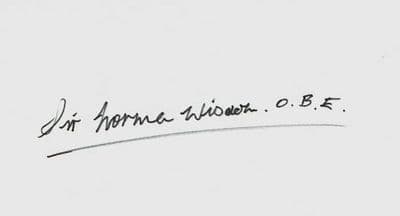 Sir Norman Wisdom. O.B.E.